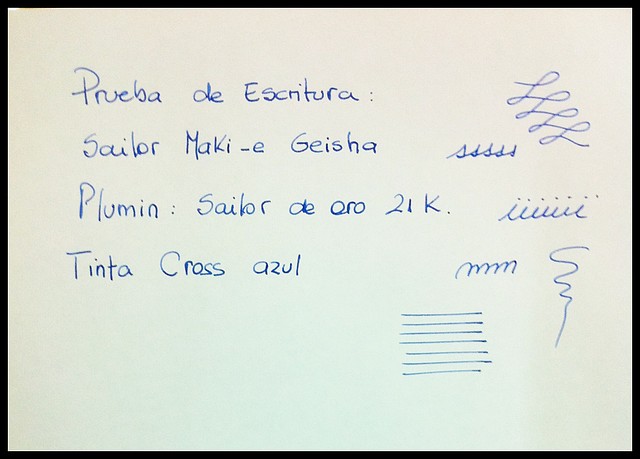 Prueba de Escritura:
Sailor Maki-e Geisha
sssss
Plumin: Sailor de oro 21 K.
iiiiiii
Tinta Cross azul
mmm